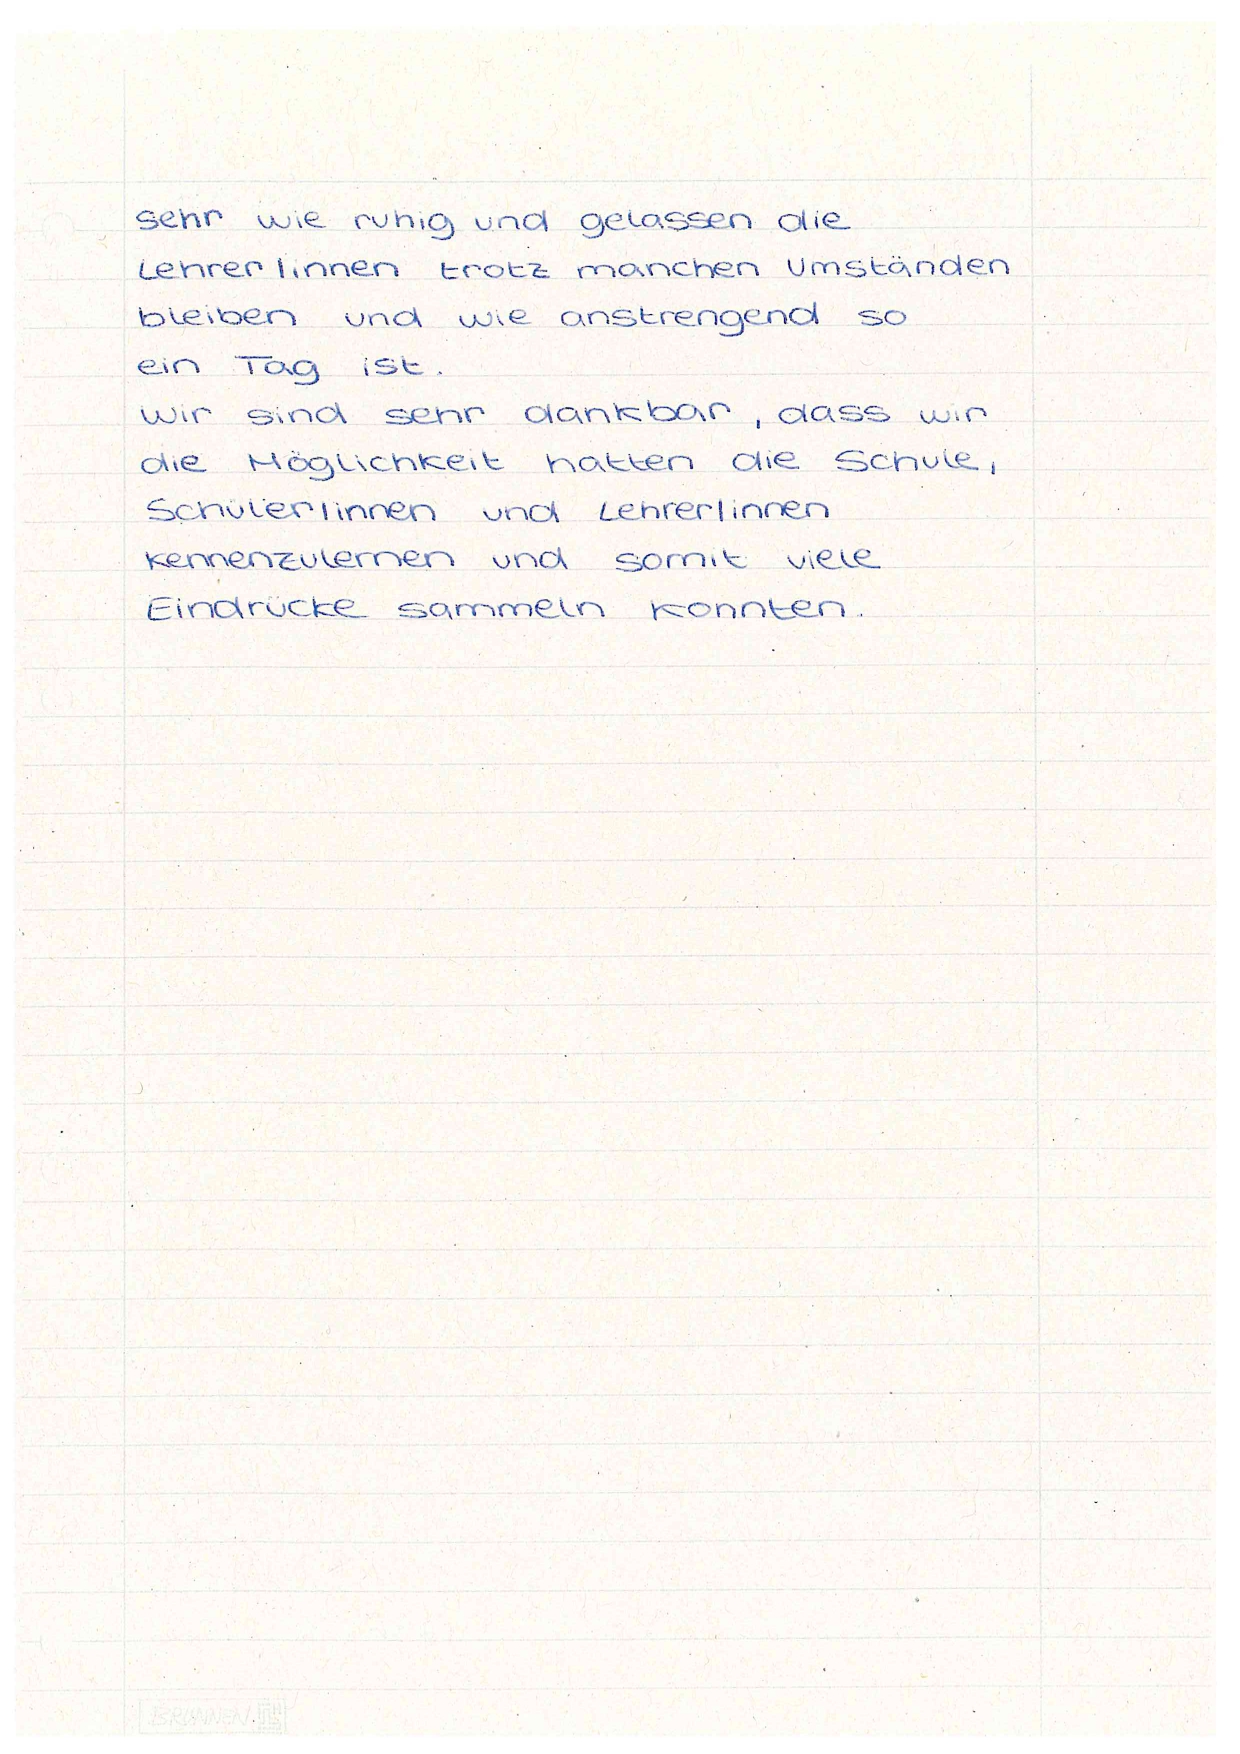 sehr wie ruhig und gelassen die
Lehrer/innen trotz manchen Umständen
bleiben und wie anstrengend so
ein Tag ist.
Wir sind sehr dankbar, dass wir
die Möglichkeit hatten die Schule,
Schüler/innen und Lehrer/innen
kennenzulernen und somit viele
Eindrücke sammeln konnten.
BRUNNEN